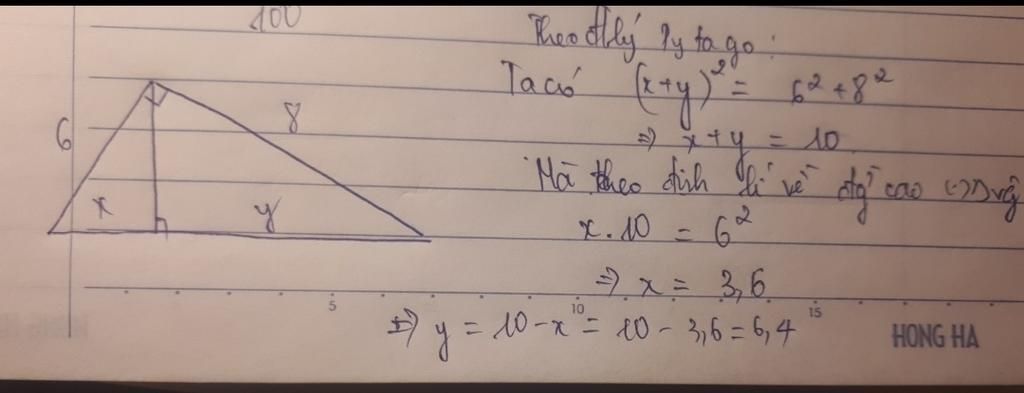 100
Theo đlý Py ta go :
Ta có (x+y)² = 6² + 8²
⇒ x + y = 10
Mà theo định lí về đg cao
x . 10 = 6²
⇒ x = 3,6
⇒ y = 10 - x = 10 - 3,6 = 6,4
6
8
x
y
5
10
15
HONG HA